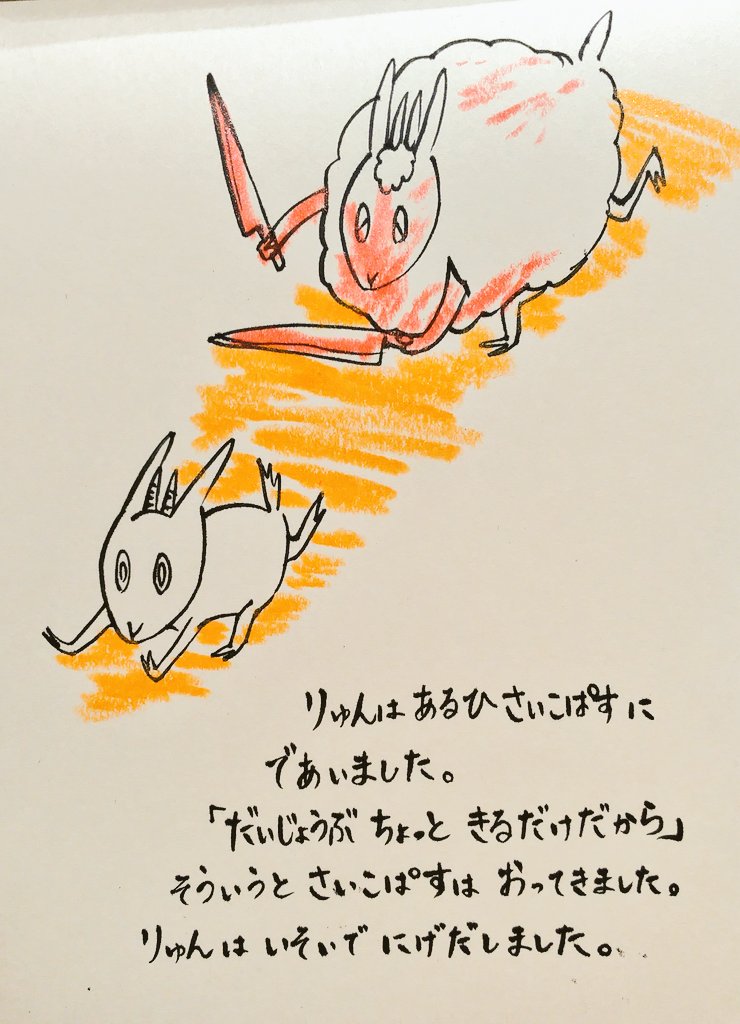 りゅんは あるひ さいこぱすに
であいました。
「だいじょうぶ ちょっと きるだけだから」
そういうと さいこぱすは おってきました。
りゅんは いそいで にげだしました。